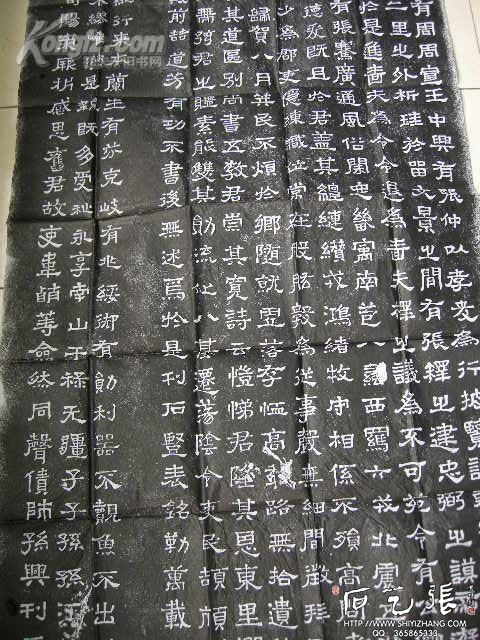 有周周宣王中興有張仲以孝友為行披覽詩雅
里之外析珪於留文景之間有張釋之建忠弼之謨
於是進嗇夫為令令退為嗇夫釋之議為不可苑令有
有張騫廣通風俗開定畿寓南苞八蠻西羈六戎北震五
德爰既且於君蓋其繵縺纘戎鴻緒牧守相係不殞高
少為郡吏隱練職位常在股肱數為從事聲無細聞徵拜
歸賀八月筭民不煩於鄉隨就虛落存恤高年路無拾遺
其道區別尚書五教君崇其寬詩云愷悌君隆其恩東里
帶弦君之體素能雙其勛流化八基遷蕩陰令吏民頡頏
殷前喆遺芳有功不書後無述焉於是刊石豎表銘勒萬載
行來本蘭生有芬克岐有兆綏御有勛利器不覿魚不出
不繆唯淑是親既多受祉永享南山干祿无疆子子孫孫
陽氣厥㭊感思舊君故吏韋萌等僉然同聲賃師孫興刊
張
HTTP://WWW.SHIYIZHANG.COM
QQ: 365865333